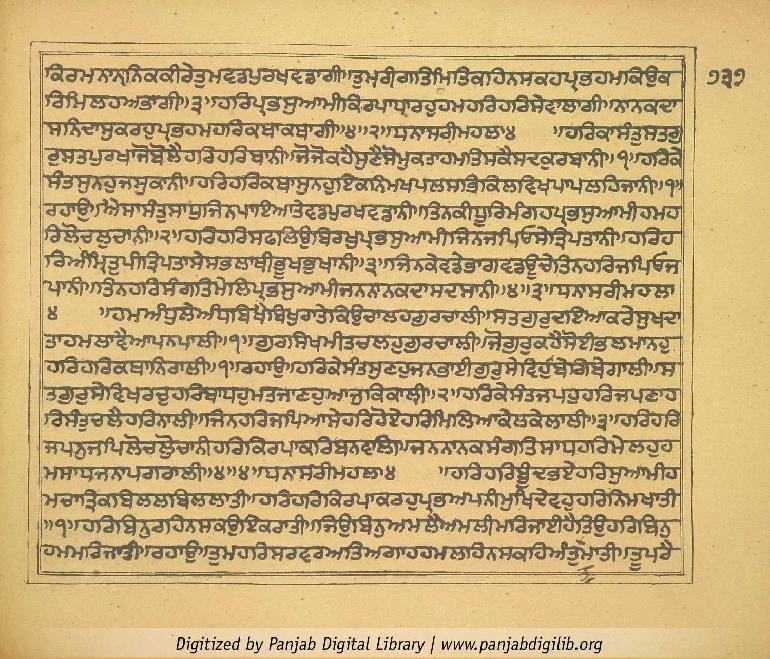 ਕਿਰਮਨਾਨ੍ਹਨਿਕਕੀਰੇਤੁਮਵਡਪੁਰਖਵਡਾਗੀ॥ਤੁਮਰੀਗਤਿਮਿਤਿਕਹਿਨਸਕਹਪ੍ਰਭਹਮਕਿਉਕ
ਰਿਮਿਲਹਅਭਾਗੀ॥੩॥ਹਰਿਪ੍ਰਭਸੁਆਮੀਕਿਰਪਾਧਾਰਹੁਹਮਹਰਿਹਰਿਸੇਵਾਲਾਗੀ॥ਨਾਨਕਦਾ
ਸਨਿਦਾਸੁਕਰਹੁਪ੍ਰਭਹਮਹਰਿਕਥਾਕਥਾਗੀ॥੪॥੨॥ਧਨਾਸਰੀਮਹਲਾ੪ ॥ਹਰਿਕਾਸੰਤੁਸਤਗੁ
ਰੁਸਤਪੁਰਖਾਜੋਬੋਲੈਹਰਿਹਰਿਬਾਨੀ॥ਜੋਜੋਕਹੈਸੁਣੈਸੋਮੁਕਤਾਹਮਤਿਸਕੈਸਦਕੁਰਬਾਨੀ॥੧॥ਹਰਿਕੇ
ਸੰਤਸੁਨਹੁਜਸੁਕਾਨੀ॥ਹਰਿਹਰਿਕਥਾਸੁਨਹੁਇਕਨਿਮਖਪਲਸਭਿਕਿਲਵਿਖਪਾਪਲਹਿਜਾਨੀ॥੧॥
ਰਹਾਉ॥ਐਸਾਸੰਤੁਸਾਧੁਜਿਨਪਾਇਆਤੇਵਡਪੁਰਖਵਡਾਨੀ॥ਤਿਨਕੀਧੂਰਿਮੰਗਹਪ੍ਰਭਸੁਆਮੀਹਮਹ
ਰਿਲੋਚਲੁਚਾਨੀ॥੨॥ਹਰਿਹਰਿਸਫਲਿਉਬਿਰਖੁਪ੍ਰਭਸੁਆਮੀਜਿਨਜਪਿਓਸੇਤ੍ਰਿਪਤਾਨੀ॥ਹਰਿਹ
ਰਿਅੰਮ੍ਰਿਤੁਪੀਤ੍ਰਿਪਤਾਸੇਸਭਲਾਥੀਭੂਖਭੁਖਾਨੀ॥੩॥ਜਿਨਕੇਵਡੇਭਾਗਵਡਊਚੇਤਿਨਹਰਿਜਪਿਓਜ
ਪਾਨੀ॥ਤਿਨਹਰਿਸੰਗਤਿਮੇਲਿਪ੍ਰਭਸੁਆਮੀਜਨਨਾਨਕਦਾਸਦਸਾਨੀ॥੪॥੩॥ਧਨਾਸਰੀਮਹਲਾ
੪ ॥ਹਮਅੰਧੁਲੇਅੰਧਬਿਖੈਬਿਖੁਰਾਤੇਕਿਉਚਾਲਹਗੁਰਚਾਲੀ॥ਸਤਗੁਰੁਦਇਆਕਰੇਸੁਖਦਾ
ਤਾਹਮਲਾਵੈਆਪਨਪਾਲੀ॥੧॥ਗੁਰਸਿਖਮੀਤਚਲਹੁਗੁਰਚਾਲੀ॥ਜੋਗੁਰੁਕਹੈਸੋਈਭਲਮਾਨਹੁ
ਹਰਿਹਰਿਕਥਾਨਿਰਾਲੀ॥੧॥ਰਹਾਉ॥ਹਰਿਕੇਸੰਤਸੁਣਹੁਜਨਭਾਈਗੁਰੁਸੇਵਿਹੁਬੇਗਿਬੇਗਾਲੀ॥ਸ
ਤਗੁਰੁਸੇਵਿਖਰਚੁਹਰਿਬਾਧਹੁਮਤਜਾਣਹੁਆਜੁਕਿਕਾਲੀ॥੨॥ਹਰਿਕੇਸੰਤਜਪਹੁਹਰਿਜਪਣਾਹ
ਰਿਸੰਤੁਚਲੈਹਰਿਨਾਲੀ॥ਜਿਨਹਰਿਜਪਿਆਸੇਹਰਿਹੋਏਹਰਿਮਿਲਿਆਕੇਲਕੇਲਾਲੀ॥੩॥ਹਰਿਹਰਿ
ਜਪਨੁਜਪਿਲੋਚਲੋੁਚਾਨੀਹਰਿਕਿਰਪਾਕਰਿਬਨਵਾਲੀ॥ਜਨਨਾਨਕਸੰਗਤਿਸਾਧਹਰਿਮੇਲਹੁਹ
ਮਸਾਧਜਨਾਪਗਰਾਲੀ॥੪॥੪॥ਧਨਾਸਰੀਮਹਲਾ੪ ॥ਹਰਿਹਰਿਬੂੰਦਭਏਹਰਿਸੁਆਮੀਹ
ਮਚਾਤ੍ਰਿਕਬਿਲਲਬਿਲਲਾਤੀ॥ਹਰਿਹਰਿਕਿਰਪਾਕਰਹੁਪ੍ਰਭਅਪਨੀਮੁਖਿਦੇਵਹੁਹਰਿਨਿਮਖਾਤੀ
॥੧॥ਹਰਿਬਿਨੁਰਹਿਨਸਕਉਇਕਰਾਤੀ॥ਜਿਉਬਿਨੁਅਮਲੈਅਮਲੀਮਰਿਜਾਈਹੈਤਿਉਹਰਿਬਿਨੁ
ਹਮਮਰਿਜਾਤੀ॥ਰਹਾਉ॥ਤੁਮਹਰਿਸਰਵਰਅਤਿਅਗਾਹਹਮਲਹਿਨਸਕਹਿਅੰਤੁਮਾਤੀ॥ਤੂਪਰੈ
੭੩੭
Digitized by Panjab Digital Library | www.panjabdigilib.org